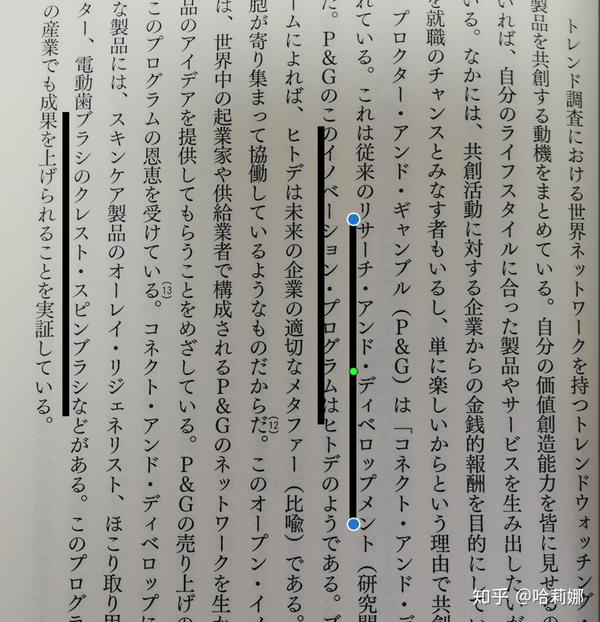 トレンド調査における世界ネットワークを持つトレンドウォッチング・
製品を共創する動機をまとめている。自分の価値創造能力を皆に見せるの
いれば、自分のライフスタイルに合った製品やサービスを生み出したいが
いる。なかには、共創活動に対する企業からの金銭的報酬を目的にしてい
を就職のチャンスとみなす者もいるし、単に楽しいからという理由で共創
プロクター・アンド・ギャンブル（P&G）は「コネクト・アンド・デ
れている。これは従来のリサーチ・アンド・ディベロップメント（研究開
た。P&Gのこのイノベーション・プログラムはヒトデのようである。ブ
ームによれば、ヒトデは未来の企業の適切なメタファー（比喩）である。
胞が寄り集まって協働しているようなものだからだ。(12)このオープン・イノ
は、世界中の起業家や供給業者で構成されるP&Gのネットワークを生か
品のアイデアを提供してもらうことをめざしている。P&Gの売り上げの
このプログラムの恩恵を受けている。(13)コネクト・アンド・ディベロップに
な製品には、スキンケア製品のオーレイ・リジェネリスト、ほこり取り用
ター、電動歯ブラシのクレスト・スピンブラシなどがある。このプログラ
の産業でも成果を上げられることを実証している。
知乎 @哈莉娜